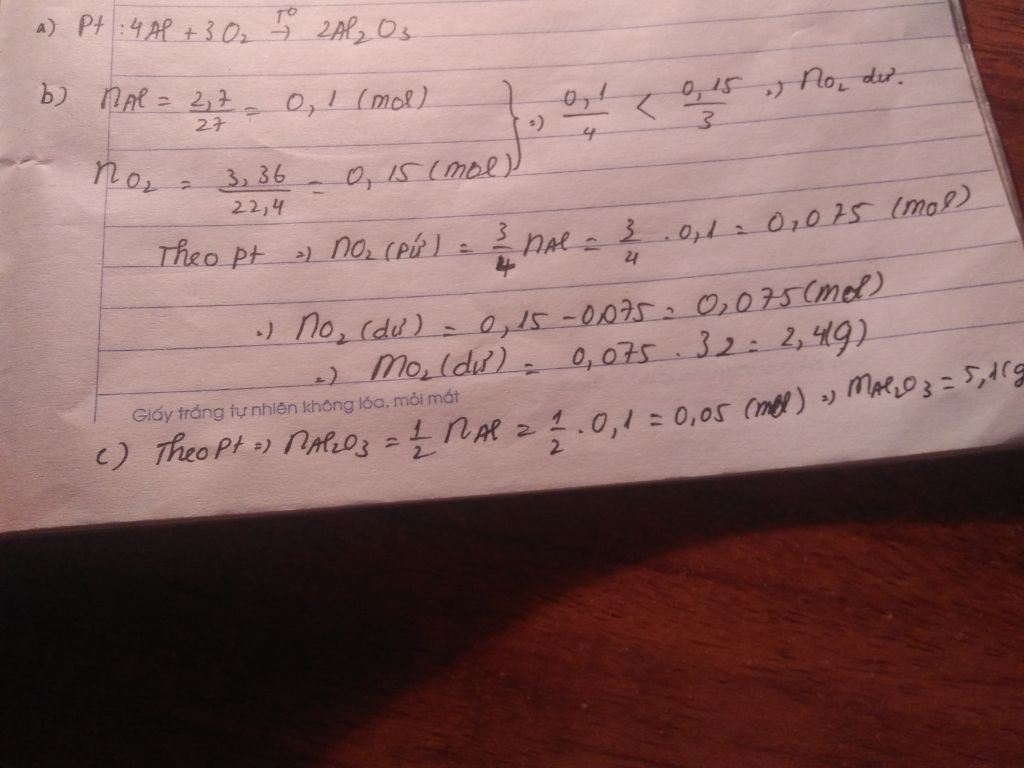 a) Pt : 4Al + 3O2 →(T°) 2Al2O3
b) nAl = 2,7/27 = 0,1 (mol) } =) 0,1/4 < 0,15/3 =) nO2 dư.
nO2 = 3,36/22,4 = 0,15 (mol)
Theo pt =) nO2 (pứ) = 3/4 nAl = 3/4 . 0,1 = 0,075 (mol)
=) nO2 (dư) = 0,15 - 0,075 = 0,075 (mol)
=) mO2 (dư) = 0,075 . 32 = 2,4(g)
Giấy trắng tự nhiên không lóa, mỏi mắt
c) Theo Pt =) nAl2O3 = 1/2 nAl = 1/2 . 0,1 = 0,05 (mol) =) mAl2O3 = 5,1(g